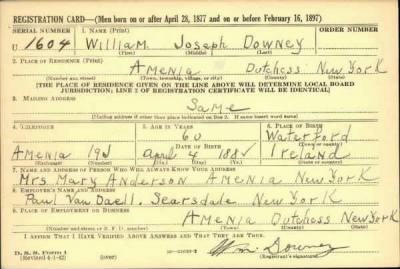 REGISTRATION CARD—(Men born on or after April 28, 1877 and on or before February 16, 1897)
SERIAL NUMBER 1. NAME (Print) ORDER NUMBER
1604 William Joseph Downey
(First) (Middle) (Last)
2. PLACE OF RESIDENCE (Print)
Amenia Dutchess New York
(Number and street) (Town, township, village, or city) (County) (State)
[THE PLACE OF RESIDENCE GIVEN ON THE LINE ABOVE WILL DETERMINE LOCAL BOARD
JURISDICTION; LINE 2 OF REGISTRATION CERTIFICATE WILL BE IDENTICAL]
3. MAILING ADDRESS
Same
(Mailing address if other than place indicated on line 2. If same insert word same)
4. TELEPHONE 5. AGE IN YEARS 6. PLACE OF BIRTH
60 Waterford
DATE OF BIRTH (Town or county)
Amenia April 4 Ireland
(Exchange) (Number) (Mo.) (Day) (Yr.) (State or country)
7. NAME AND ADDRESS OF PERSON WHO WILL ALWAYS KNOW YOUR ADDRESS
Mrs. Mary Anderson Amenia New York
8. EMPLOYER'S NAME AND ADDRESS
Paul Van Daell, Scarsdale, New York
9. PLACE OF EMPLOYMENT OR BUSINESS
Amenia Dutchess New York
(Number and street or R. F. D. number) (Town) (County) (State)
I AFFIRM THAT I HAVE VERIFIED ABOVE ANSWERS AND THAT THEY ARE TRUE.
D. S. S. Form 1
(Revised 4-1-42) (over) Wm. Downey
(Registrant's signature)